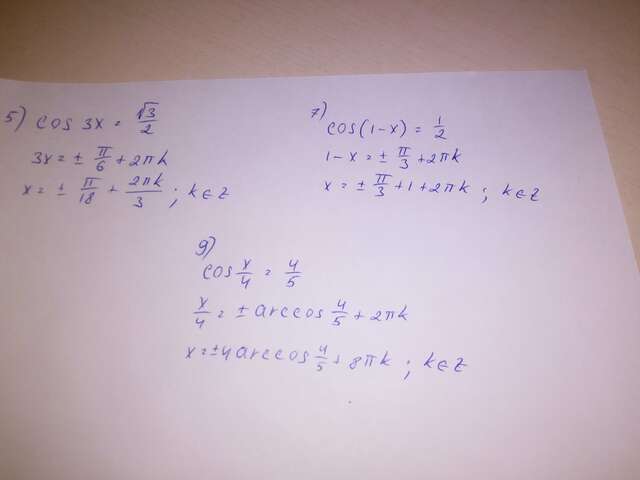 5) cos 3x = √3/2
3x = ± π/6 + 2πk
x = ± π/18 + 2πk/3 ; k∈Z
7)
cos(1-x) = 1/2
1-x = ± π/3 + 2πk
x = ± π/3 + 1 + 2πk ; k∈Z
9)
cos x/4 = 4/5
x/4 = ± arccos 4/5 + 2πk
x = ±4 arccos 4/5 + 8πk ; k∈Z